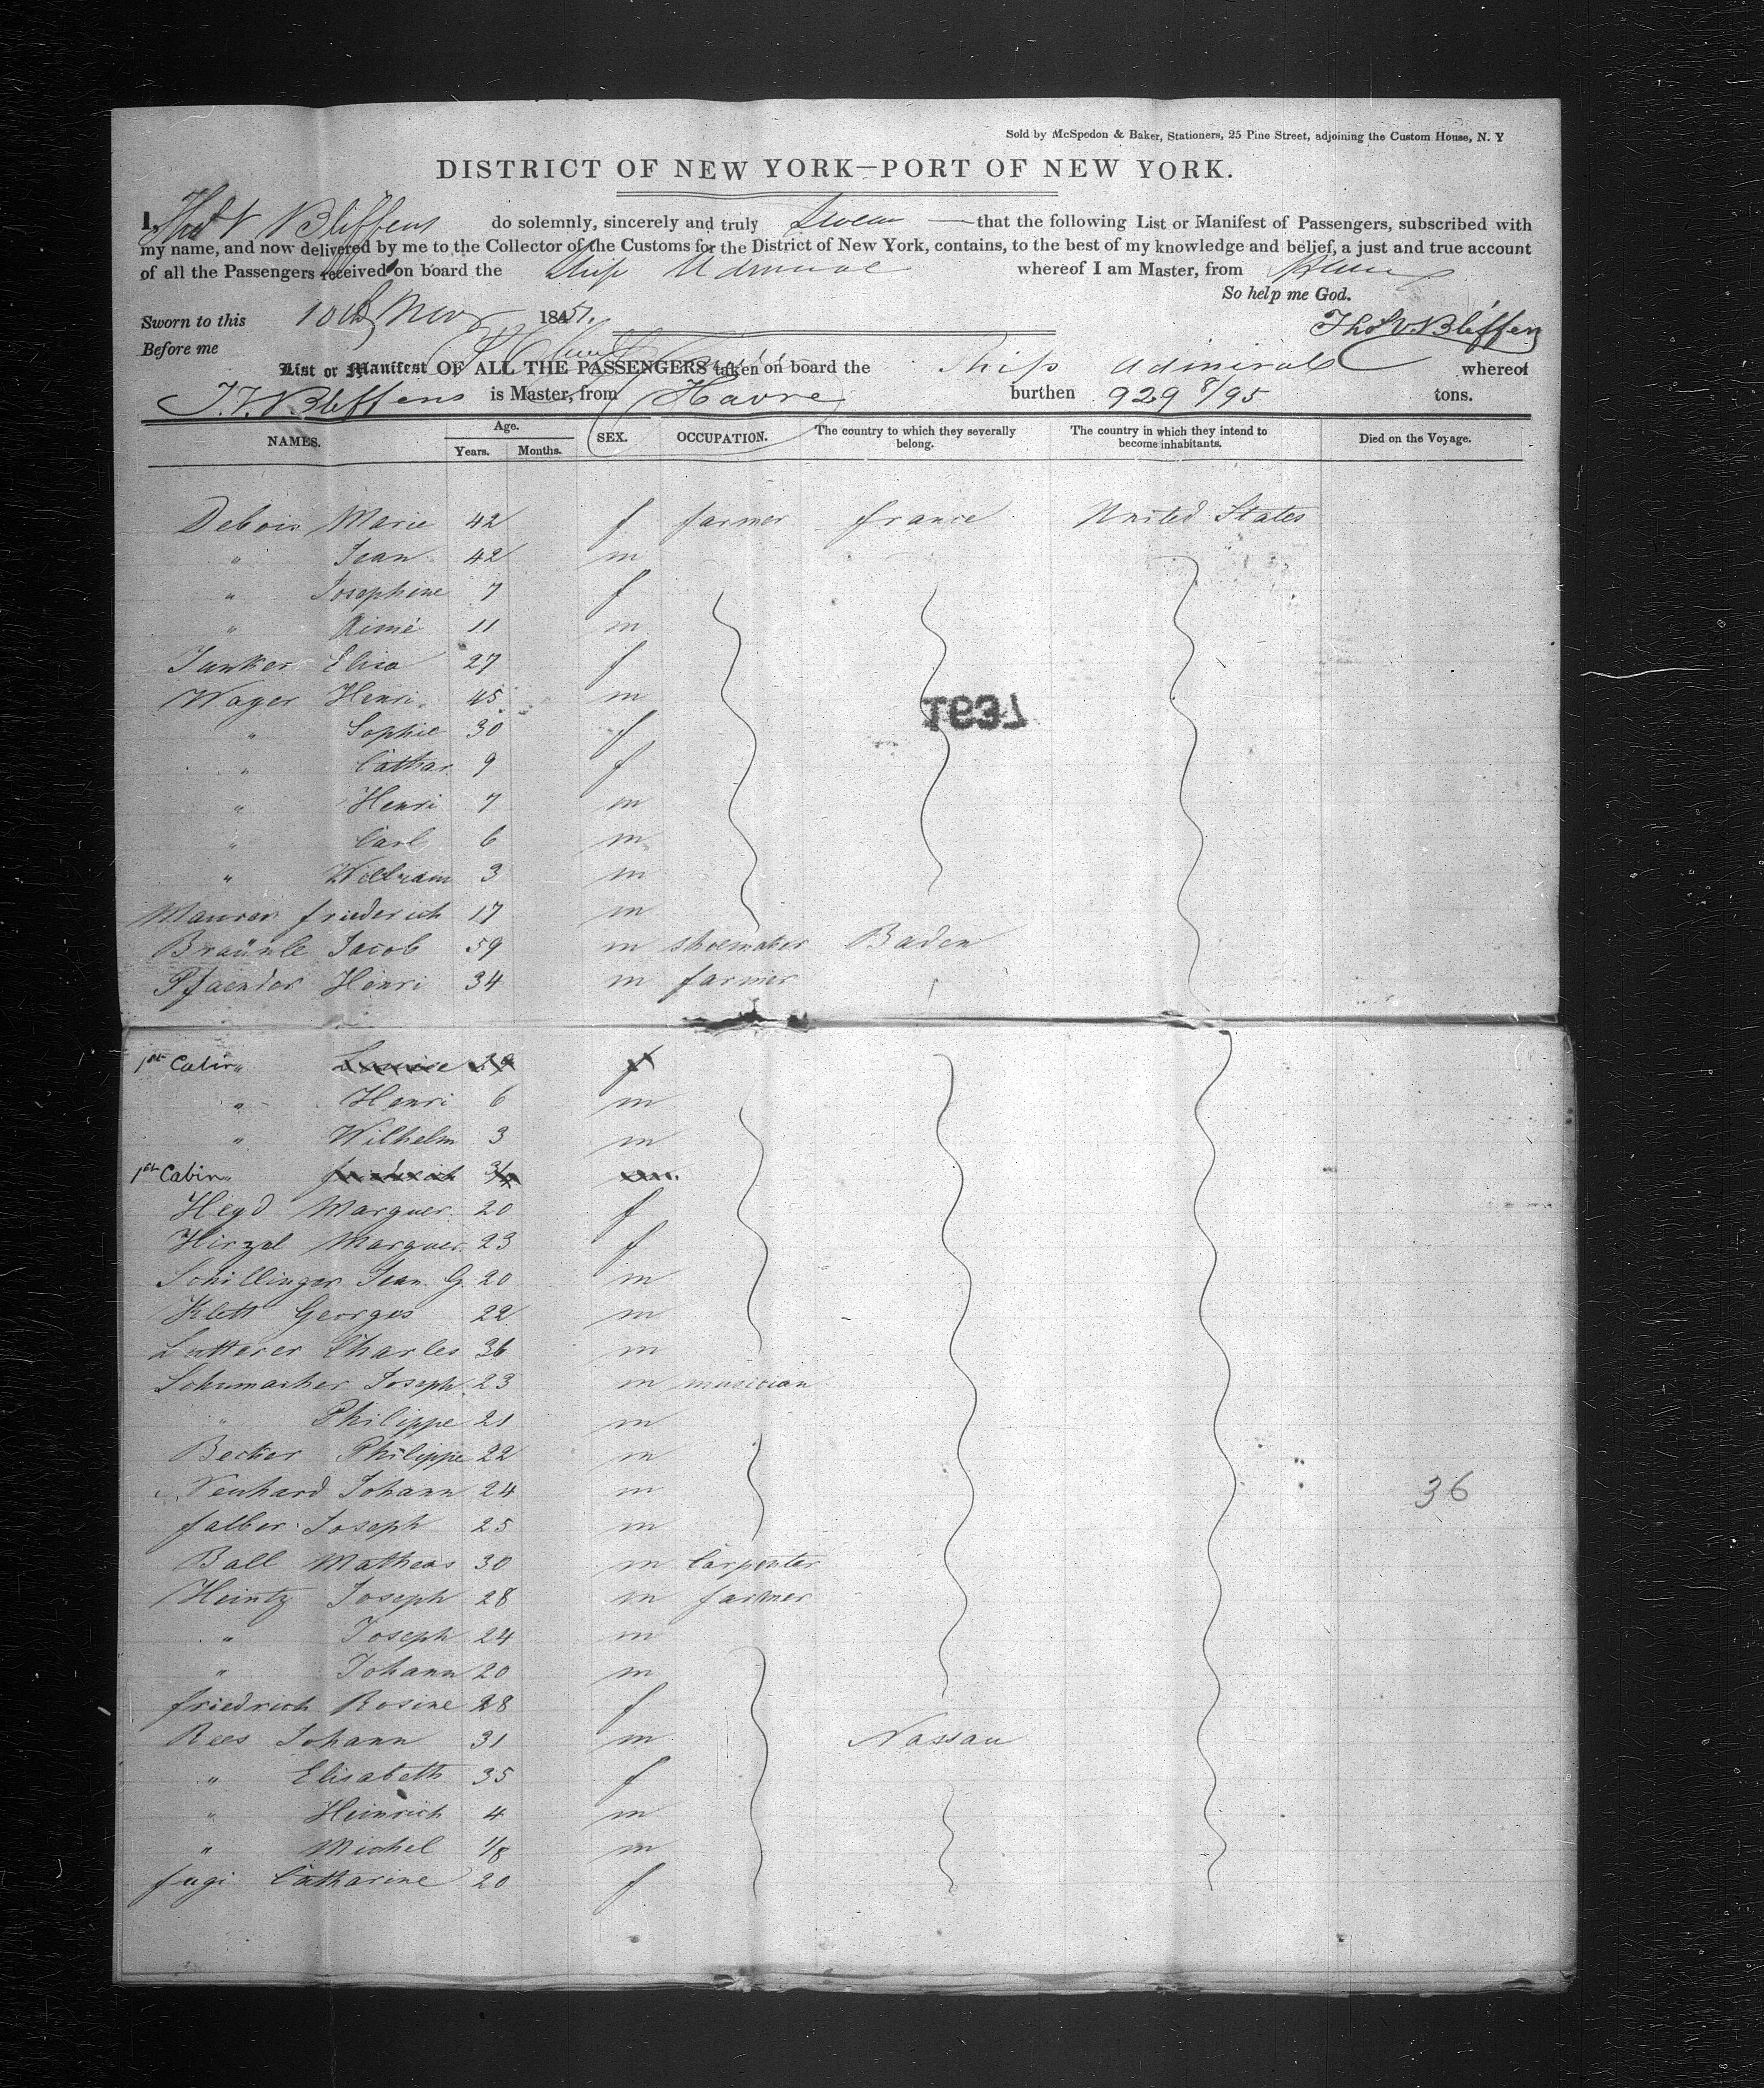 Sold by McSpedon & Baker, Stationers, 25 Pine Street, adjoining the Custom House, N. Y
DISTRICT OF NEW YORK—PORT OF NEW YORK.
I, Thos V Bliffens do solemnly, sincerely and truly Swear — that the following List or Manifest of Passengers, subscribed with
my name, and now delivered by me to the Collector of the Customs for the District of New York, contains, to the best of my knowledge and belief, a just and true account
of all the Passengers received on board the Ship Admiral whereof I am Master, from
So help me God.
Sworn to this 10th Nov 1851.
Thos V. Bliffen
Before me
List or Manifest OF ALL THE PASSENGERS taken on board the Ship Admiral whereof
T. V. Bliffens is Master, from Havre burthen 929 8/95 tons.
NAMES. Age. Years. Months. SEX. OCCUPATION. The country to which they severally belong. The country in which they intend to become inhabitants. Died on the Voyage.
Debois Marie 42 f farmer france United States
" Jean 42 m
" Josephine 7 f
" Aimé 11 m
Junker Elisa 27 f
Wager Henri 45 m
1637
" Sophie 30 f
" Cathar. 9 f
" Henri 7 m
" Carl 6 m
" William 3 m
Maurer friederich 17 m
Bräunle Jacob 59 m shoemaker Baden
Pfaender Henri 34 m farmer
1st Cabin " Louise 29 f
" Henri 6 m
" Wilhelm 3 m
1st Cabin " friederich 3/4 m.
Heyd Marguer. 20 f
Hirzel Marguer. 23 f
Schillinger Jean. G. 20 m
Klett Georges 22 m
Lutterer Charles 36 m
Schumacher Joseph 23 m musician
" Philippe 21 m
Becker Philippe 22 m
Neuhard Johann 24 m 36
falber Joseph 25 m
Ball Matheas 30 m Carpenter
Heintz Joseph 28 m farmer
" Joseph 24 m
" Johann 20 m
friedrich Rosine 28 f
Rees Johann 31 m Nassau
" Elisabeth 35 f
" Heinrich 4 m
" Michel 1/8 m
fugi Catharine 20 f